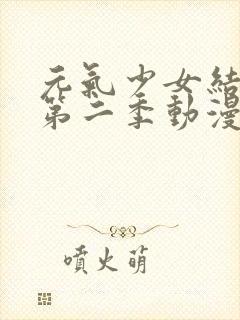 元氣少女結
第二季動漫
噴火萌